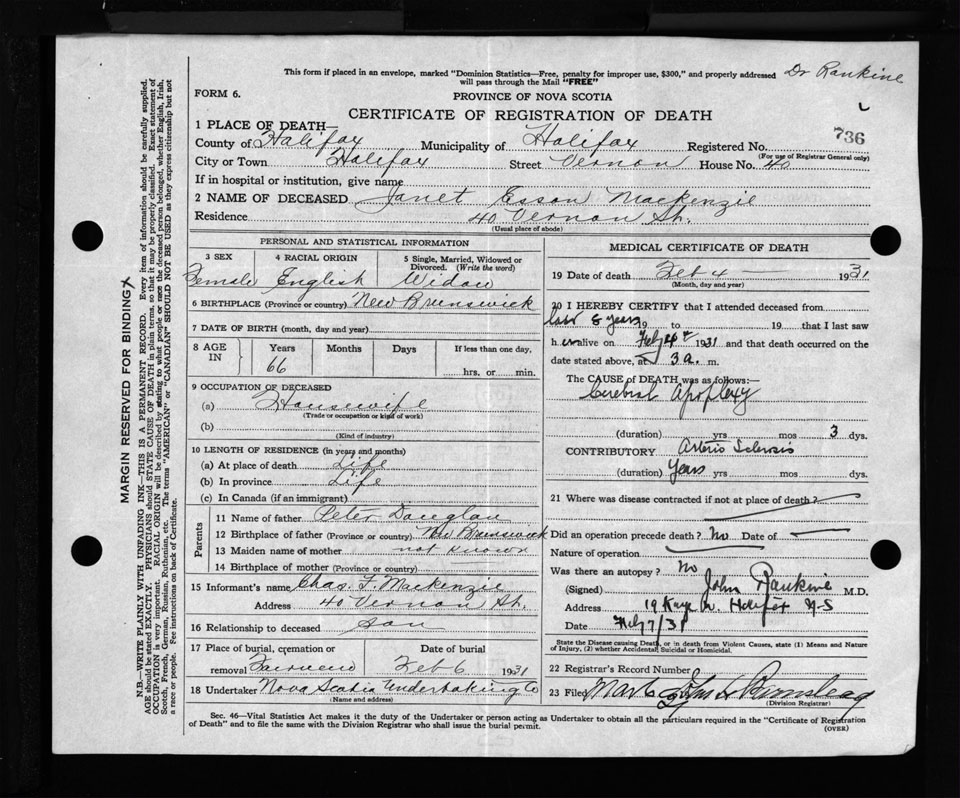 This form if placed in an envelope, marked "Dominion Statistics—Free, penalty for improper use, $300," and properly addressed
will pass through the Mail "FREE"
Dr Rankine
FORM 6.
PROVINCE OF NOVA SCOTIA
CERTIFICATE OF REGISTRATION OF DEATH
736
1 PLACE OF DEATH—
County of Halifax Municipality of Halifax Registered No.
(For use of Registrar General only)
City or Town Halifax Street Vernon House No. 40
If in hospital or institution, give name
2 NAME OF DECEASED Janet Esson Mackenzie
Residence 40 Vernon St.
(Usual place of abode)
PERSONAL AND STATISTICAL INFORMATION
3 SEX 4 RACIAL ORIGIN 5 Single, Married, Widowed or
Divorced. (Write the word)
Female English Widow
6 BIRTHPLACE (Province or country) New Brunswick
7 DATE OF BIRTH (month, day and year)
8 AGE IN Years Months Days If less than one day,
66 hrs. or min.
9 OCCUPATION OF DECEASED
(a) Housewife
(Trade or occupation or kind of work)
(b)
(Kind of industry)
10 LENGTH OF RESIDENCE (in years and months)
(a) At place of death Life
(b) In province Life
(c) In Canada (if an immigrant)
Parents
11 Name of father Peter
12 Birthplace of father (Province or country) New Brunswick
13 Maiden name of mother not known
14 Birthplace of mother (Province or country)
15 Informant's name Chas. F. Mackenzie
Address 40 Vernon St.
16 Relationship to deceased Son
17 Place of burial, cremation or Date of burial
removal Fairview Feb 6 1931
18 Undertaker Nova Scotia Undertaking Co
(Name and address)
MEDICAL CERTIFICATE OF DEATH
19 Date of death Feb 4 — 1931
(Month, day and year)
20 I HEREBY CERTIFY that I attended deceased from
last 8 years 19 to 19 that I last saw
h er alive on Feby 4th 1931 and that death occurred on the
date stated above, at 3 a. m.
The CAUSE OF DEATH was as follows:—
Cerebral Apoplexy
(duration) yrs mos 3 dys.
CONTRIBUTORY Arterio Sclerosis
(duration) years yrs mos dys.
21 Where was disease contracted if not at place of death?
Did an operation precede death? No Date of —
Nature of operation
Was there an autopsy? No
(Signed) John Rankine M.D.
Address 19 Kaye St. Halifax N-S
Date Feby 7/31
State the Disease causing Death, or in death from Violent Causes, state (1) Means and Nature
of Injury, (2) whether Accidental, Suicidal or Homicidal.
22 Registrar's Record Number
23 Filed
(Division Registrar)
Sec. 46—Vital Statistics Act makes it the duty of the Undertaker or person acting as Undertaker to obtain all the particulars required in the "Certificate of Registration
of Death" and to file the same with the Division Registrar who shall issue the burial permit.
(OVER)
MARGIN RESERVED FOR BINDING
N.B.—WRITE PLAINLY WITH UNFADING INK—THIS IS A PERMANENT RECORD. Every item of information should be carefully supplied.
AGE should be stated EXACTLY. PHYSICIANS should STATE CAUSE OF DEATH in plain terms, so that it may be properly classified. Exact statement of
OCCUPATION is very important. RACIAL ORIGIN will be described by stating to what people or race the deceased person belonged, whether English, Irish,
Scotch, French, German, Russian, Ruthenian, etc. The terms "AMERICAN" or "CANADIAN" SHOULD NOT BE USED as they express citizenship but not
a race or people. See instructions on back of Certificate.